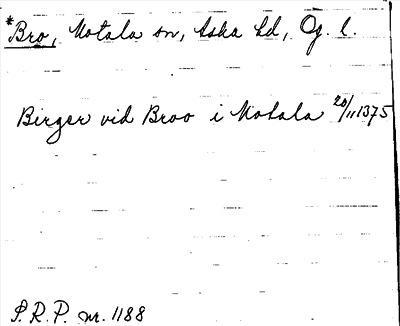 *Bro, Motala sn, Aska hd, Ög. l.
Birger vid Broo i Motala 20/11 1375
P.R.P. nr. 1188